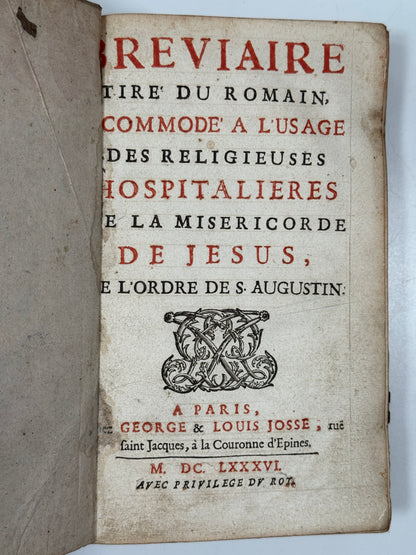 BREVIAIRE
TIRE' DU ROMAIN,
COMMODE' A L'USAGE
DES RELIGIEUSES
HOSPITALIERES
E LA MISERICORDE
DE JESUS,
E L'ORDRE DE S. AUGUSTIN.
A PARIS,
GEORGE & LOUIS JOSSE, ruë
saint Jacques, à la Couronne d'Epines.
M. DC. LXXXVI.
AVEC PRIVILEGE DV ROY.